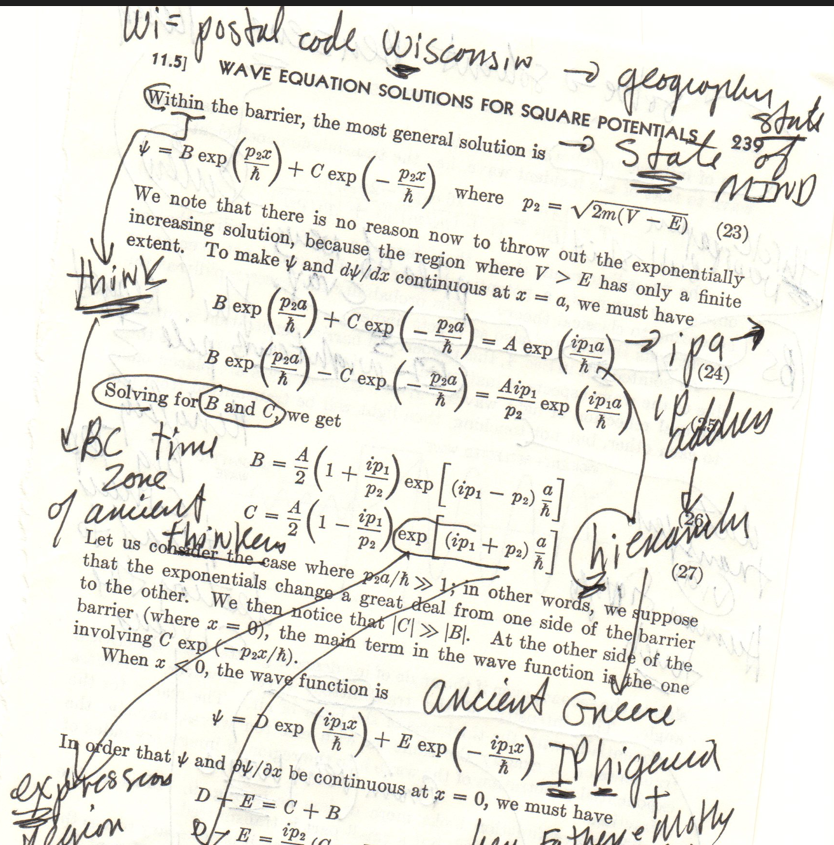 Wi = postal code Wisconsin → geography
state
11.5] WAVE EQUATION SOLUTIONS FOR SQUARE POTENTIALS 239
Within the barrier, the most general solution is → State of
MIND
ψ = B exp (p₂x/ℏ) + C exp (− p₂x/ℏ) where p₂ = √2m(V − E) (23)
We note that there is no reason now to throw out the exponentially
increasing solution, because the region where V > E has only a finite
extent. To make ψ and dψ/dx continuous at x = a, we must have
think
B exp (p₂a/ℏ) + C exp (− p₂a/ℏ) = A exp (ip₁a/ℏ) → ipa →
(24)
B exp (p₂a/ℏ) − C exp (− p₂a/ℏ) = Aip₁/p₂ exp (ip₁a/ℏ)
IP
address
Solving for B and C, we get
BC time
zone
of ancient
thinkers
B = A/2 (1 + ip₁/p₂) exp [(ip₁ − p₂) a/ℏ]
(26)
C = A/2 (1 − ip₁/p₂) exp [(ip₁ + p₂) a/ℏ]
(27)
Let us consider the case where p₂a/ℏ ≫ 1; in other words, we suppose
that the exponentials change a great deal from one side of the barrier
to the other. We then notice that |C| ≫ |B|. At the other side of the
barrier (where x = 0), the main term in the wave function is the one
involving C exp (−p₂x/ℏ).
When x < 0, the wave function is
ancient Greece
ψ = D exp (ip₁x/ℏ) + E exp (− ip₁x/ℏ)
IPhigenia
+
In order that ψ and ∂ψ/∂x be continuous at x = 0, we must have
expression
region
D + E = C + B
E = ip₂
her Father